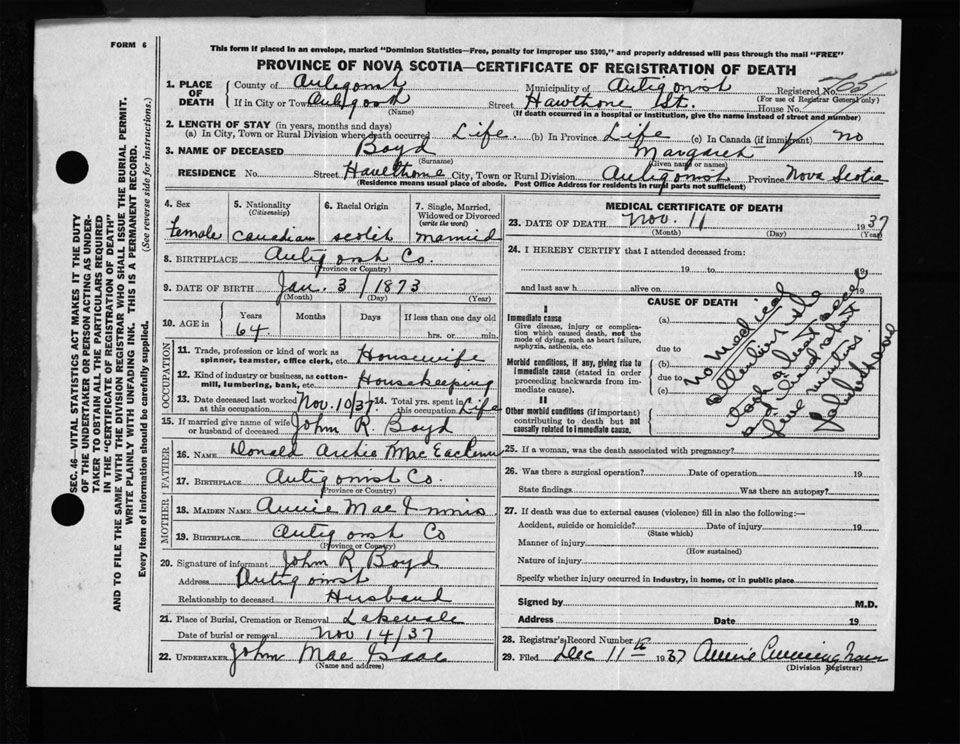 FORM 6
This form if placed in an envelope, marked "Dominion Statistics—Free, penalty for improper use $300," and properly addressed will pass through the mail "FREE"
PROVINCE OF NOVA SCOTIA—CERTIFICATE OF REGISTRATION OF DEATH
1. PLACE OF DEATH County of Antigonish Municipality of Antigonish Registered No. 765
(For use of Registrar General only)
If in City or Town Antigonish Street Hawthorne St. House No.
(Name) (If death occurred in a hospital or institution, give the name instead of street and number)
2. LENGTH OF STAY (in years, months and days)
(a) In City, Town or Rural Division where death occurred Life. (b) In Province Life (c) In Canada (if immigrant) no
3. NAME OF DECEASED Boyd Margaret
(Surname) Given name or names)
RESIDENCE No. Street Hawthorne City, Town or Rural Division Antigonish Province Nova Scotia
(Residence means usual place of abode. Post Office Address for residents in rural parts not sufficient)
4. Sex 5. Nationality (Citizenship) 6. Racial Origin 7. Single, Married, Widowed or Divorced (write the word)
Female Canadian Scotch Married
8. BIRTHPLACE Antigonish Co.
(Province or Country)
9. DATE OF BIRTH Jan. 3 / 1873
(Month) (Day) (Year)
10. AGE in Years Months Days If less than one day old
64 hrs. or min.
OCCUPATION
11. Trade, profession or kind of work as spinner, teamster, office clerk, etc. Housewife
12. Kind of industry or business, as cotton-mill, lumbering, bank, etc. Housekeeping
13. Date deceased last worked at this occupation Nov. 10/37 14. Total yrs. spent in this occupation Life
15. If married give name of wife or husband of deceased John R. Boyd
FATHER
16. NAME Donald Archie MacEachern
17. BIRTHPLACE Antigonish Co.
(Province or Country)
MOTHER
18. MAIDEN NAME Annie Mac Innis
19. BIRTHPLACE Antigonish Co
(Province or Country)
20. Signature of informant John R Boyd
Address Antigonish
Relationship to deceased Husband
21. Place of Burial, Cremation or Removal Lakevale
Date of burial or removal Nov 14/37
22. UNDERTAKER John Mac Isaac
(Name and address)
MEDICAL CERTIFICATE OF DEATH
23. DATE OF DEATH Nov. 11 1937
(Month) (Day) (Year)
24. I HEREBY CERTIFY that I attended deceased from:
19 to 19
and last saw h alive on 19
CAUSE OF DEATH
I
Immediate cause (a)
Give disease, injury or complication which caused death, not the mode of dying, such as heart failure, asphyxia, asthenia, etc.
due to
Morbid conditions, if any, giving rise to immediate cause (stated in order proceeding backwards from immediate cause).
(b)
due to
(c)
II
Other morbid conditions (if important) contributing to death but not causally related to immediate cause.
No medical
attention
took
five minutes
25. If a woman, was the death associated with pregnancy?
26. Was there a surgical operation? Date of operation 19
State findings Was there an autopsy?
27. If death was due to external causes (violence) fill in also the following:—
Accident, suicide or homicide? Date of injury 19
(State which)
Manner of injury
(How sustained)
Nature of injury
Specify whether injury occurred in industry, in home, or in public place
Signed by M.D.
Address Date 19
28. Registrar's Record Number
29. Filed Dec 11th 1937 Annie Cunningham
(Division Registrar)
SEC. 46—VITAL STATISTICS ACT MAKES IT THE DUTY
OF THE UNDERTAKER OR PERSON ACTING AS UNDER-
TAKER TO OBTAIN ALL THE PARTICULARS REQUIRED
IN THE "CERTIFICATE OF REGISTRATION OF DEATH"
AND TO FILE THE SAME WITH THE DIVISION REGISTRAR WHO SHALL ISSUE THE BURIAL PERMIT.
WRITE PLAINLY WITH UNFADING INK. THIS IS A PERMANENT RECORD.
Every item of information should be carefully supplied. (See reverse side for instructions.)